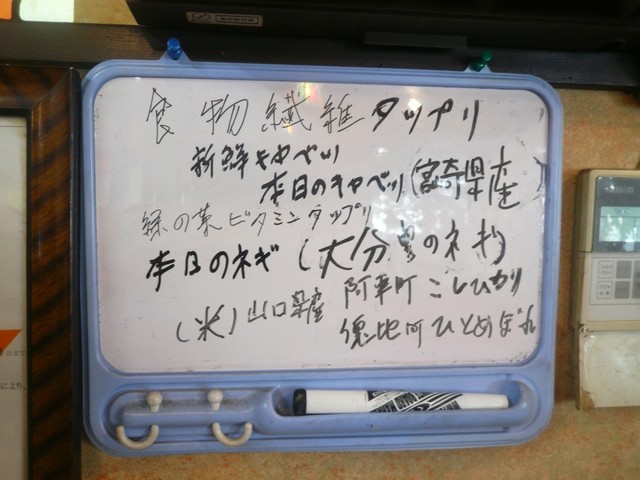 食物繊維タップリ
新鮮キャベツ
本日のキャベツ(宮崎県産)
緑の葉ビタミンタップリ
本日のネギ(大分県のネギ)
(米)山口県産
阿東町こしひかり
徳地町ひとめぼれ